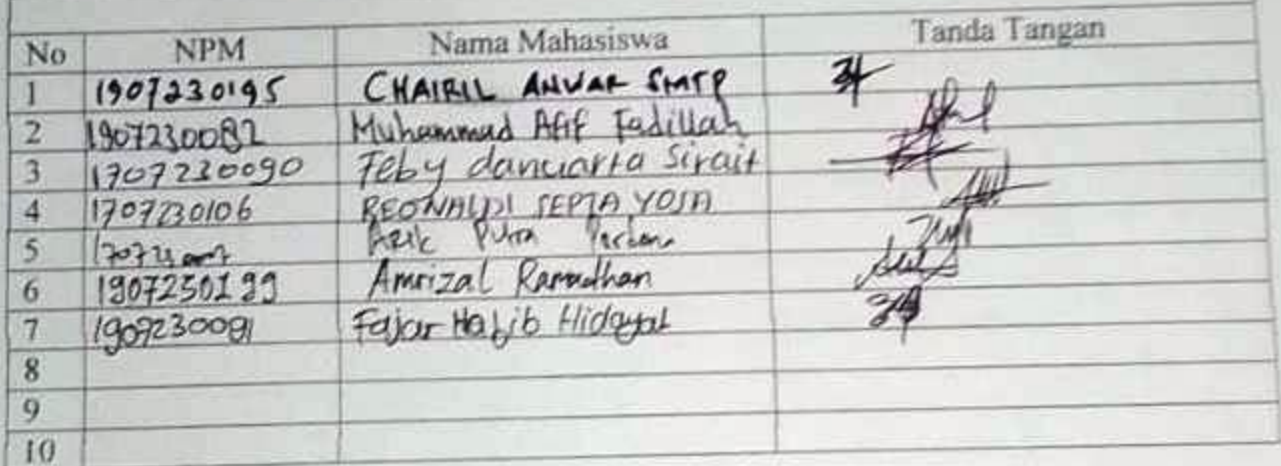 No NPM Nama Mahasiswa Tanda Tangan
1 1907230195 CHAIRIL ANWAR
2 1907230082 Muhammad Afif Fadillah
3 1707230090 Feby danuarta Sirait
4 1707230106 REONALDI SEPTA YOSA
5 Putra
6 1907230199 Amrizal Ramadhan
7 1907230091 Fajar Habib Hidayat
8
9
10